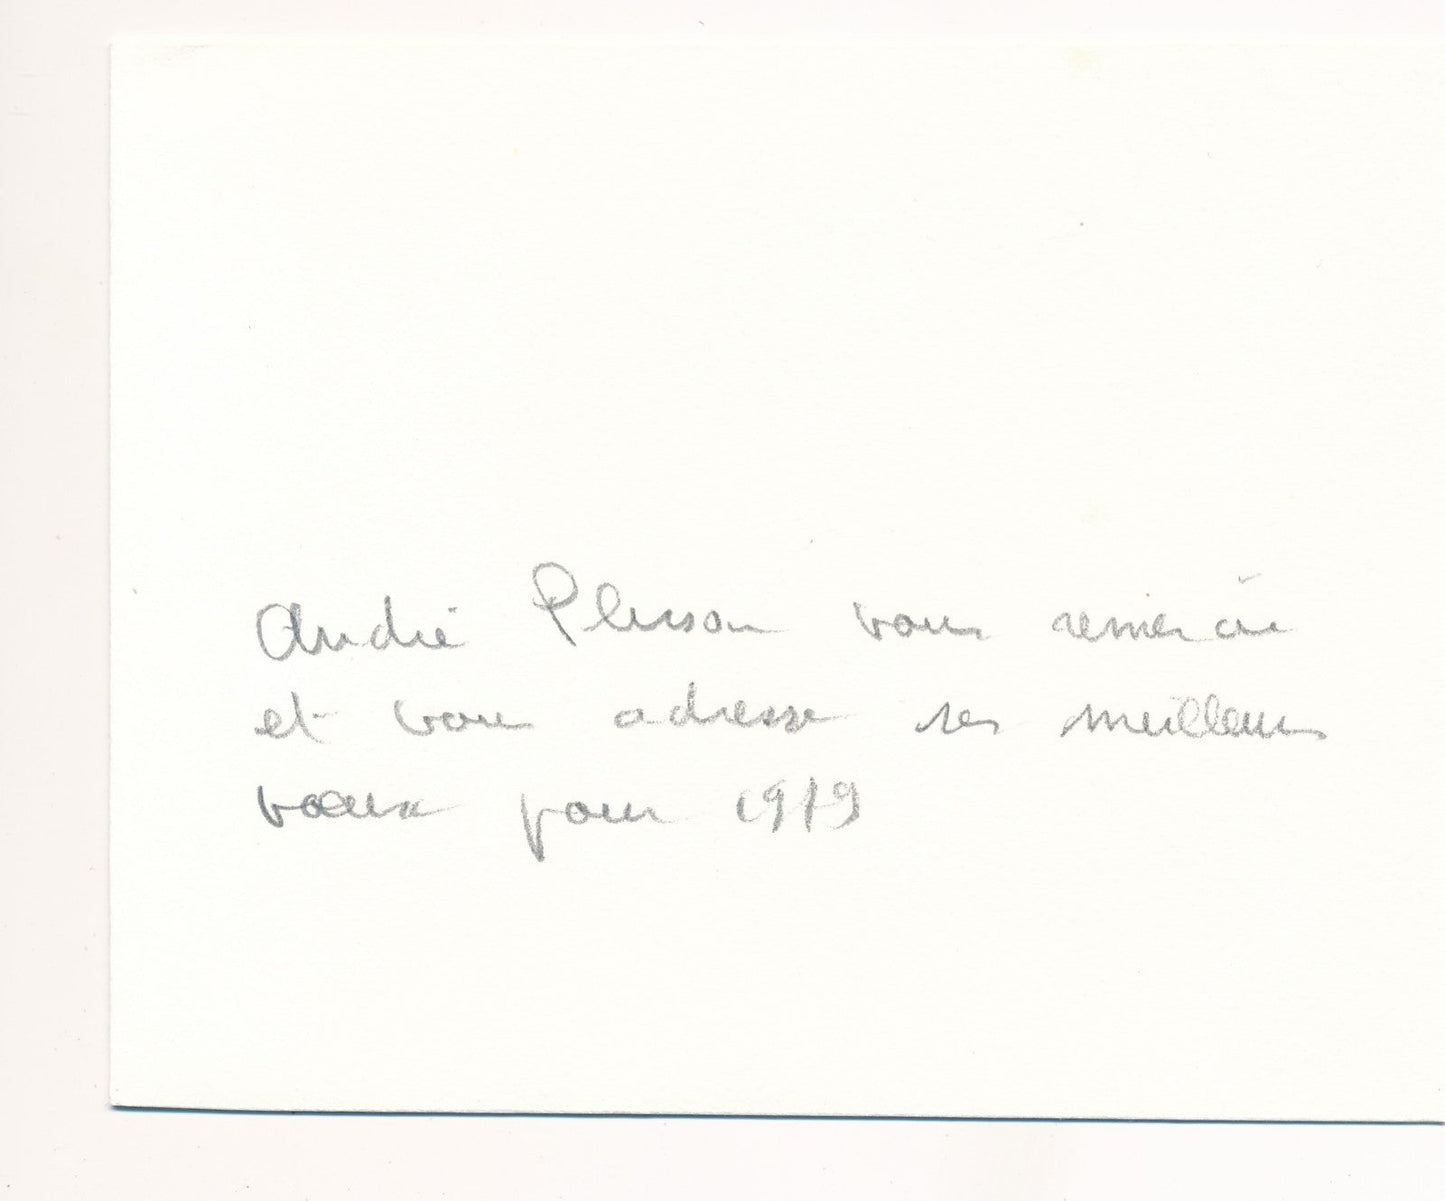 André Plusson vous remercie
et vous adresse ses meilleurs
voeux pour 1979